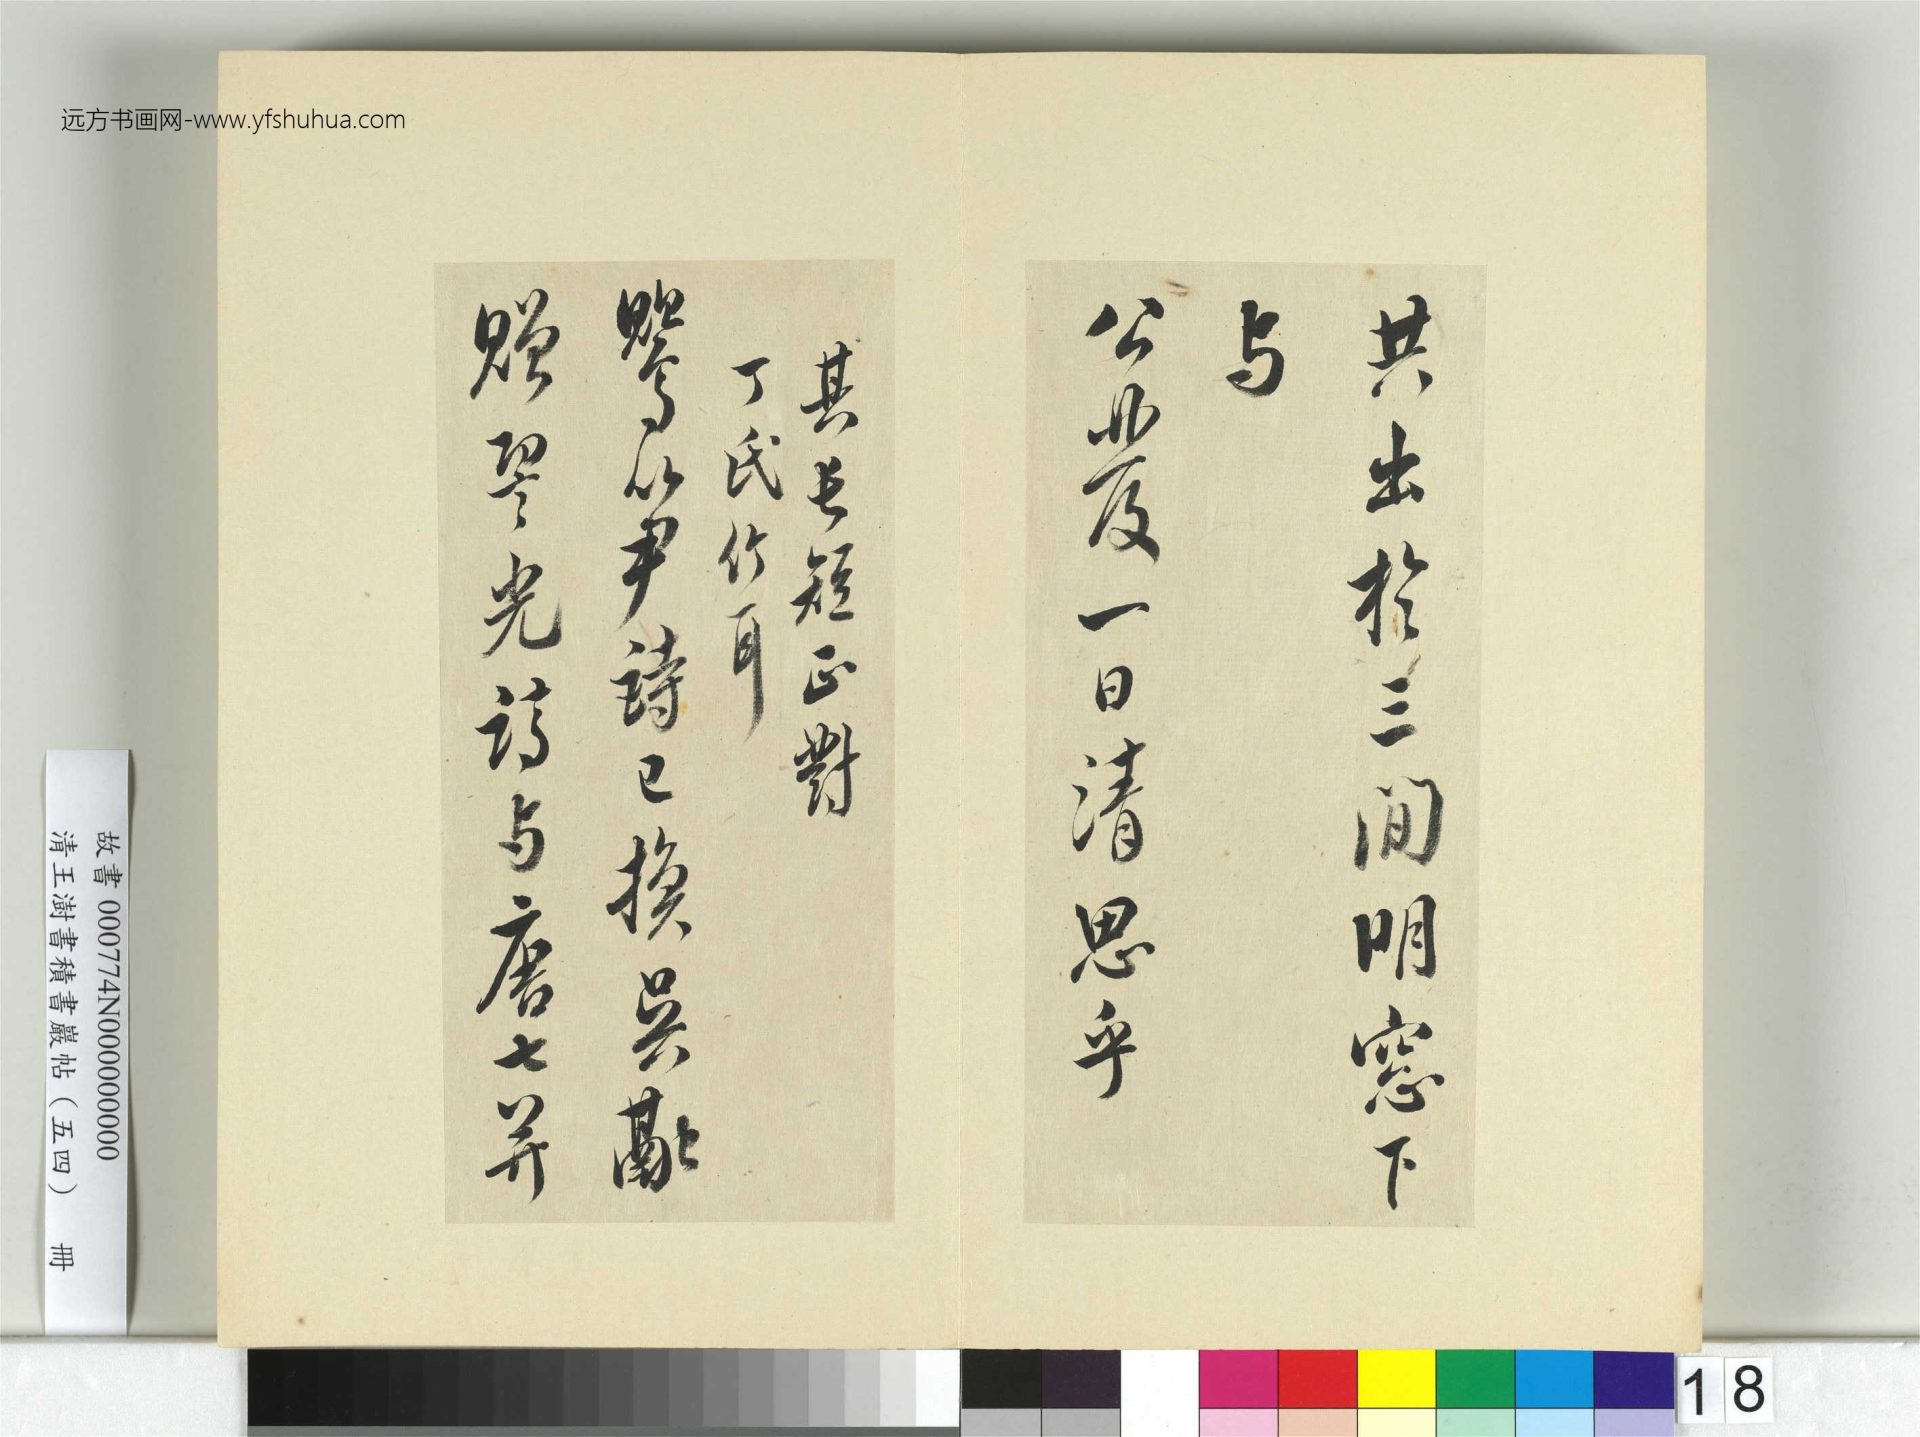 远方书画网-www.yfshuhua.com
共出於三间明窓下
与
公共发一日清思乎
其长短正對
丁氏竹耳
以尹詩已换吴
贈翠光詩与唐七并
故書 000774N000000000
清王澍書積書巖帖（五四） 冊
18